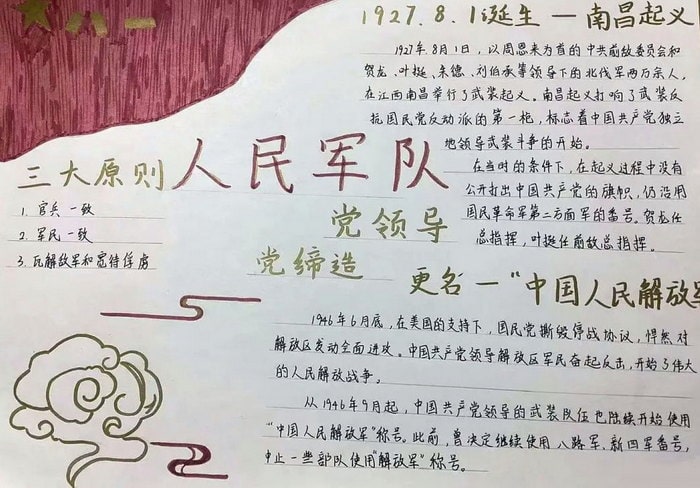 八一
1927.8.1诞生—南昌起义
1927年8月1日，以周恩来为首的中共前敌委员会和
贺龙、叶挺、朱德、刘伯承等领导下的北伐军两万余人，
在江西南昌举行了武装起义。南昌起义打响了武装反
抗国民党反动派的第一枪，标志着中国共产党独立
地领导武装斗争的开始。
在当时的条件下，在起义过程中没有
公开打出中国共产党的旗帜，仍沿用
国民革命军第二方面军的番号。贺龙任
总指挥，叶挺任前敌总指挥。
人民军队
党领导
党缔造
三大原则
1. 官兵一致
2. 军民一致
3. 瓦解敌军和宽待俘虏
更名—“中国人民解放军
1946年6月底，在美国的支持下，国民党撕毁停战协议，悍然对
解放区发动全面进攻。中国共产党领导解放区军民奋起反击，开始了伟大
的人民解放战争。
从1946年9月起，中国共产党领导的武装队伍也陆续开始使用
“中国人民解放军”称号。此前，曾决定继续使用八路军、新四军番号，
中止一些部队使用“解放军”称号。